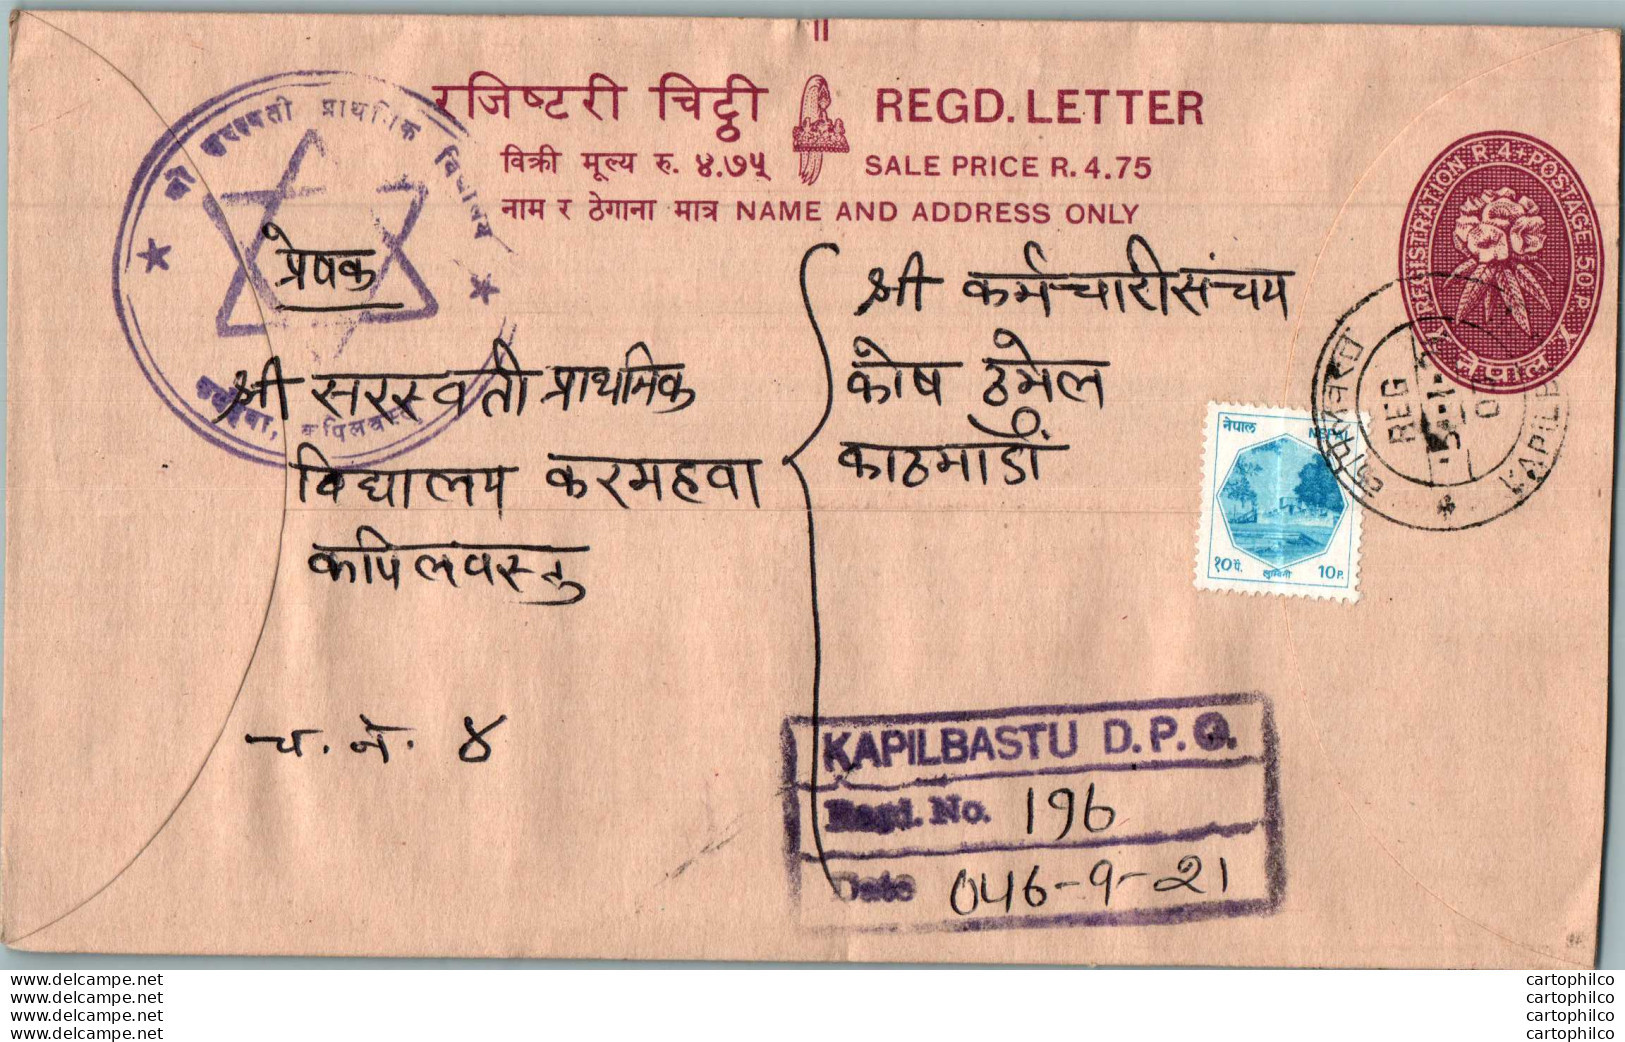 रजिष्टरी चिट्ठी REGD. LETTER
विक्री मूल्य रु. ४.७५ SALE PRICE R. 4.75
नाम र ठेगाना मात्र NAME AND ADDRESS ONLY
REGISTRATION R.4+POSTAGE 50 P.
नेपाल
श्री सरस्वती प्राथमिक विद्यालय
कपिलवस्तु
प्रेषक
श्री सरस्वती प्राथमिक
विद्यालय करमहवा
कपिलवस्तु
च. नं. ४
श्री कर्मचारी संचय
कोष ठमेल
काठमाडौं
नेपाल NEPAL
१० पै. लुम्बिनी 10 P.
कपिलवस्तु
REG
KAPILB
KAPILBASTU D.P.O.
Regd. No. 196
Date 046-9-21
www.delcampe.net cartophilco
www.delcampe.net cartophilco
www.delcampe.net cartophilco
www.delcampe.net cartophilco